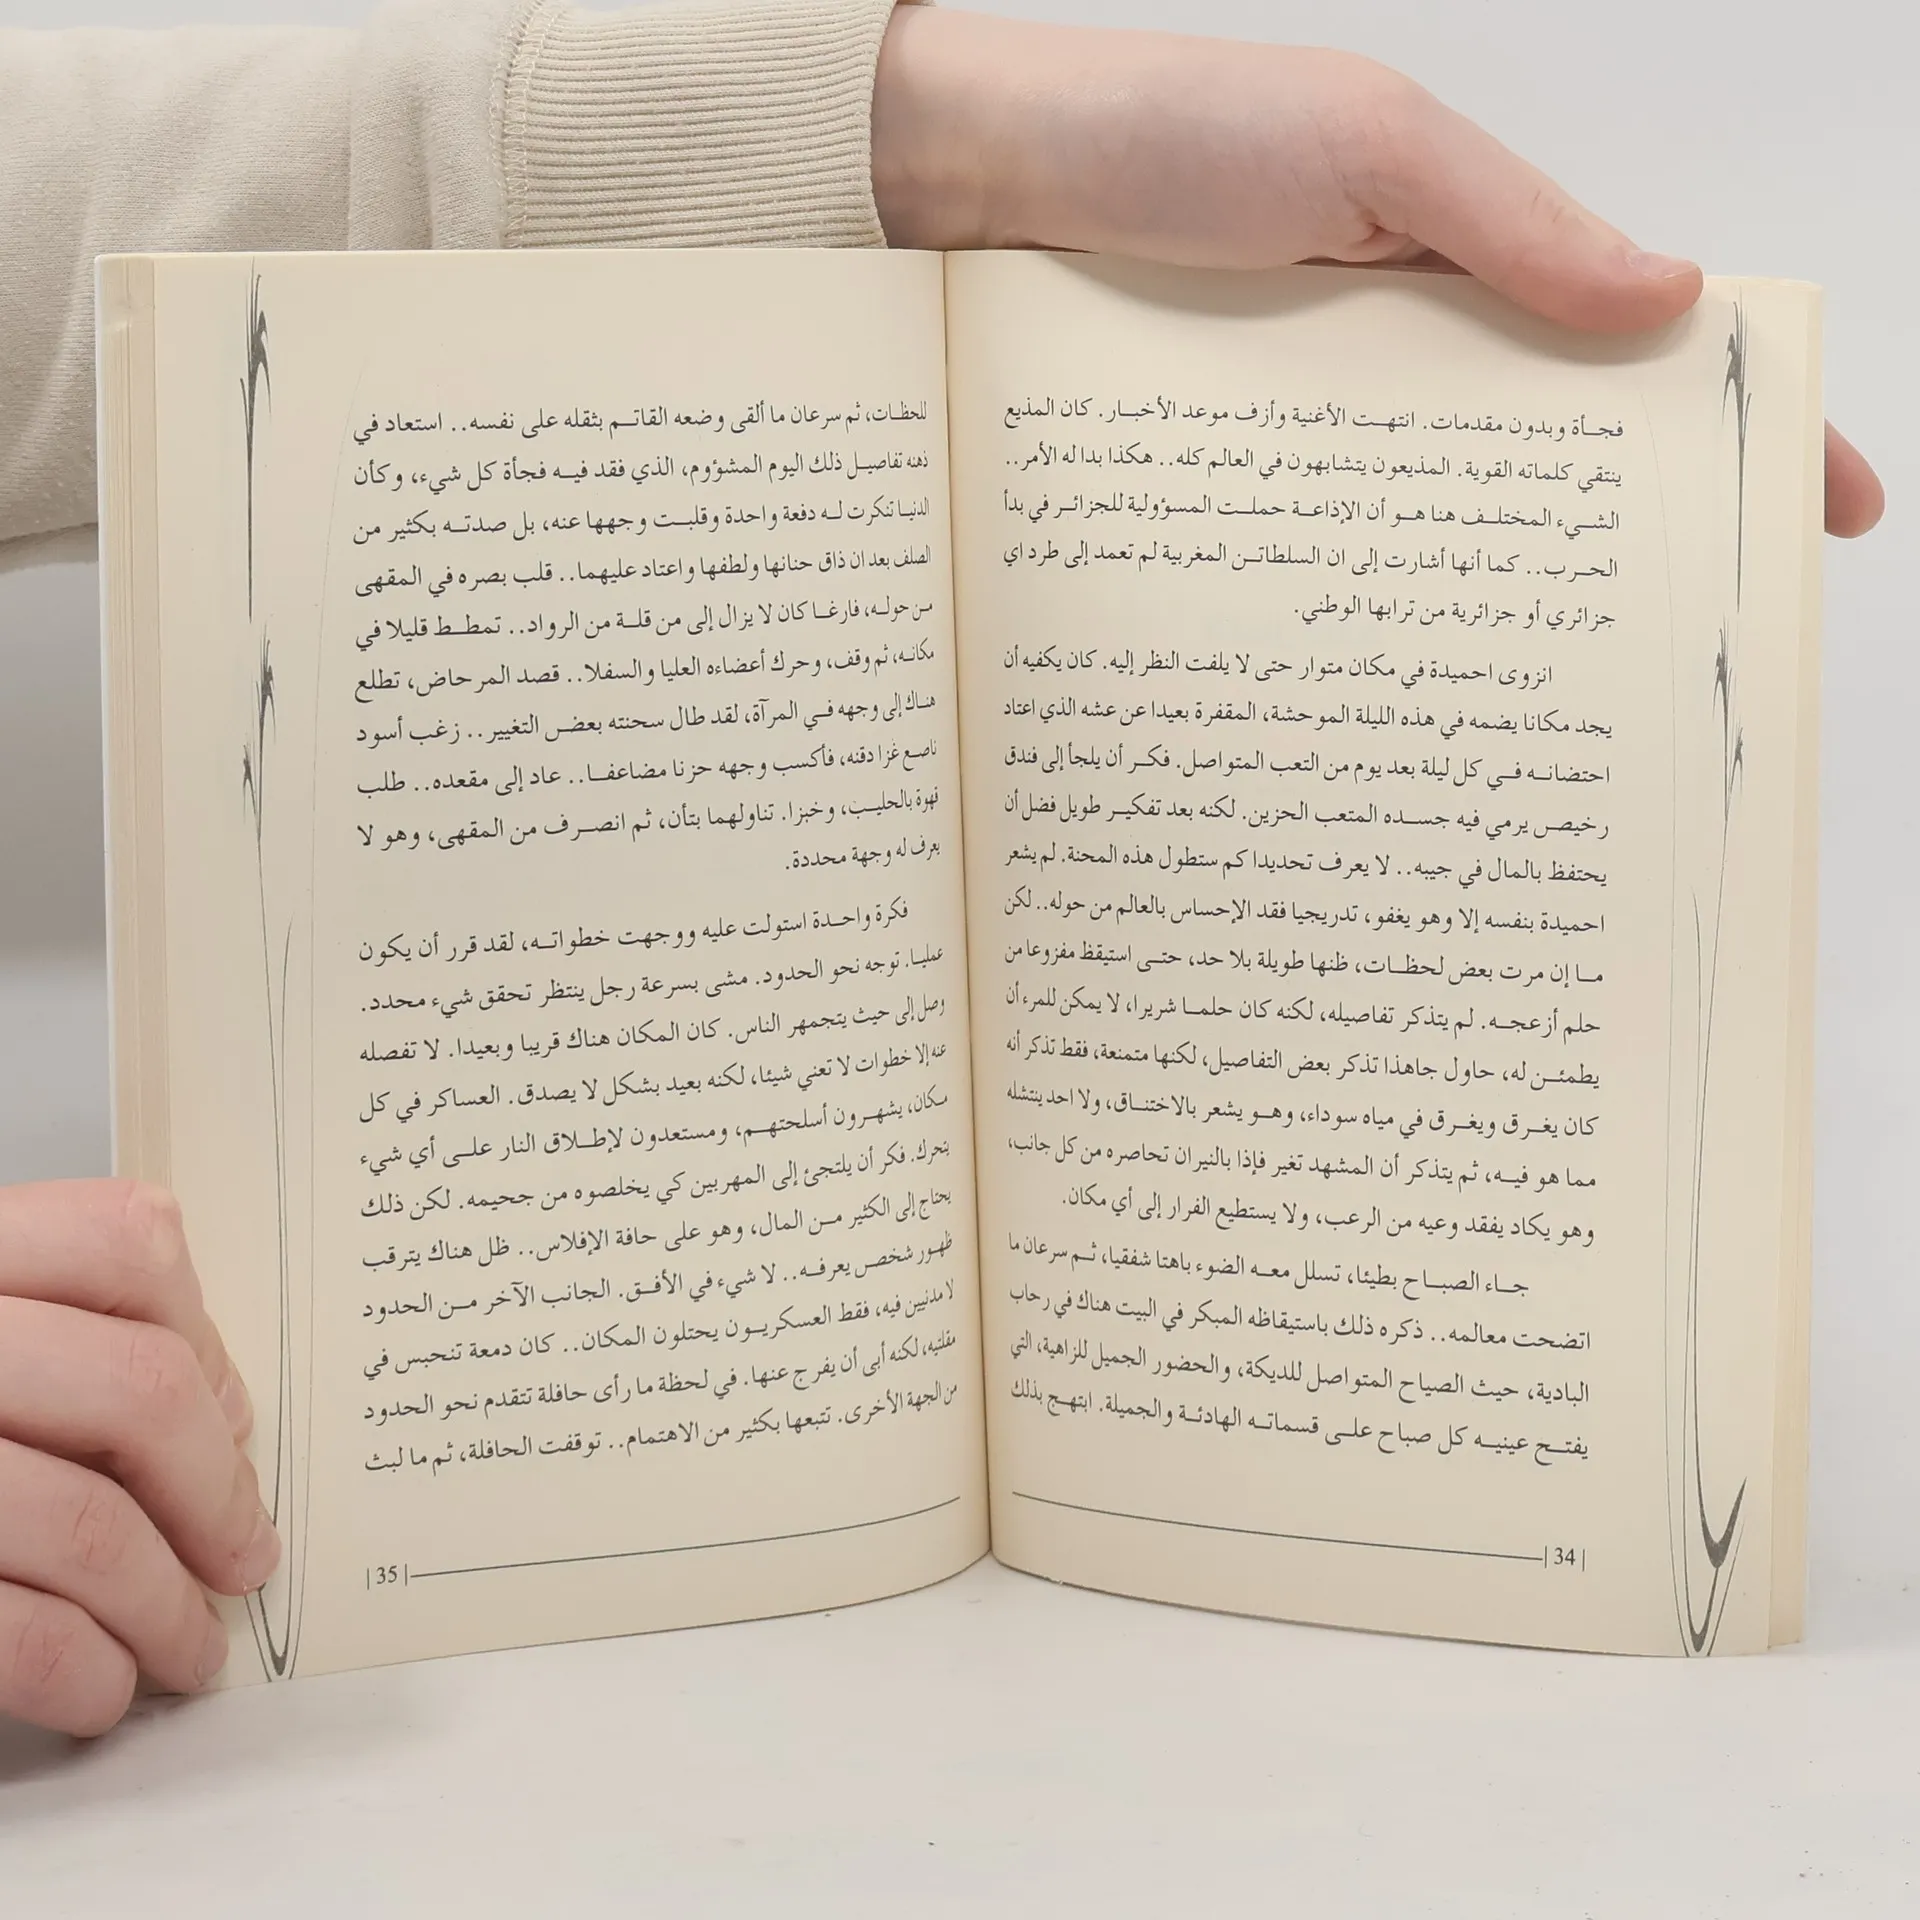 فجأة وبدون مقدمات. انتهت الأغنية وأزف موعد الأخبار. كان المذيع
ينتقي كلماته القوية. المذيعون يتشابهون في العالم كله.. هكذا بدا له الأمر..
الشيء المختلف هنا هو أن الإذاعة حملت المسؤولية للجزائر في بدأ
الحرب.. كما أنها أشارت إلى ان السلطاتن المغربية لم تعمد إلى طرد اي
جزائري أو جزائرية من ترابها الوطني.
انزوى احميدة في مكان متوار حتى لا يلفت النظر إليه. كان يكفيه أن
يجد مكانا يضمه في هذه الليلة الموحشة، المقفرة بعيدا عن عشه الذي اعتاد
احتضانه في كل ليلة بعد يوم من التعب المتواصل. فكر أن يلجأ إلى فندق
رخيص يرمي فيه جسده المتعب الحزين. لكنه بعد تفكير طويل فضل أن
يحتفظ بالمال في جيبه.. لا يعرف تحديدا كم ستطول هذه المحنة. لم يشعر
احميدة بنفسه إلا وهو يغفو، تدريجيا فقد الإحساس بالعالم من حوله.. لكن
ما إن مرت بعض لحظات، ظنها طويلة بلا حد، حتى استيقظ مفزوعا من
حلم أزعجه. لم يتذكر تفاصيله، لكنه كان حلما شريرا، لا يمكن للمرء أن
يطمئن له، حاول جاهذا تذكر بعض التفاصيل، لكنها متمنعة، فقط تذكر أنه
كان يغرق ويغرق في مياه سوداء، وهو يشعر بالاختناق، ولا احد ينتشله
مما هو فيه، ثم يتذكر أن المشهد تغير فإذا بالنيران تحاصره من كل جانب،
وهو يكاد يفقد وعيه من الرعب، ولا يستطيع الفرار إلى أي مكان.
جاء الصباح بطيئا، تسلل معه الضوء باهتا شفقيا، ثم سرعان ما
اتضحت معالمه.. ذكره ذلك باستيقاظه المبكر في البيت هناك في رحاب
البادية، حيث الصياح المتواصل للديكة، والحضور الجميل للزاهية، التي
يفتح عينيه كل صباح على قسماته الهادئة والجميلة. ابتهج بذلك
| 34 |
للحظات، ثم سرعان ما ألقى وضعه القاتم بثقله على نفسه.. استعاد في
ذهنه تفاصيل ذلك اليوم المشؤوم، الذي فقد فيه فجأة كل شيء، وكأن
الدنيا تنكرت له دفعة واحدة وقلبت وجهها عنه، بل صدته بكثير من
الصلف بعد ان ذاق حنانها ولطفها واعتاد عليهما.. قلب بصره في المقهى
من حوله، فارغا كان لا يزال إلى من قلة من الرواد.. تمطط قليلا في
مكانه، ثم وقف، وحرك أعضاءه العليا والسفلا.. قصد المرحاض، تطلع
هناك إلى وجهه في المرآة، لقد طال سحنته بعض التغيير.. زغب أسود
ناصع غزا دقنه، فأكسب وجهه حزنا مضاعفا.. عاد إلى مقعده.. طلب
قهوة بالحليب، وخبزا. تناولهما بتأن، ثم انصرف من المقهى، وهو لا
يعرف له وجهة محددة.
فكرة واحدة استولت عليه ووجهت خطواته، لقد قرر أن يكون
عمليا. توجه نحو الحدود. مشى بسرعة رجل ينتظر تحقق شيء محدد.
وصل إلى حيث يتجمهر الناس. كان المكان هناك قريبا وبعيدا. لا تفصله
عنه إلا خطوات لا تعني شيئا، لكنه بعيد بشكل لا يصدق. العساكر في كل
مكان، يشهرون أسلحتهم، ومستعدون لإطلاق النار على أي شيء
يتحرك. فكر أن يلتجئ إلى المهربين كي يخلصوه من جحيمه. لكن ذلك
يحتاج إلى الكثير من المال، وهو على حافة الإفلاس.. ظل هناك يترقب
ظهور شخص يعرفه.. لا شيء في الأفق. الجانب الآخر من الحدود
لا مدنيين فيه، فقط العسكريون يحتلون المكان.. كان دمعة تنحبس في
مقلتيه، لكنه أبى أن يفرج عنها. في لحظة ما رأى حافلة تتقدم نحو الحدود
من الجهة الأخرى. تتبعها بكثير من الاهتمام.. توقفت الحافلة، ثم ما لبث
| 35 |